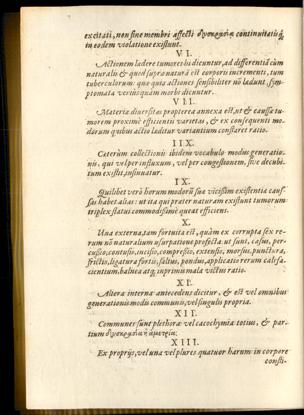 excitati, non sine membri affecti δυσκρασίᾳ continuitatisq́;
in eodem violatione existunt.
VI.
Actionem lædere tumores hi dicuntur, ad differentiã cùm
naturalis & quod supra naturã est corporis incrementi, tum
tuberculorum: quæ quia actiones sensibiliter nõ lædunt, sym-
ptomata veriùs quàm morbi dicuntur.
VII.
Materia diversitas propterea annexa est, ut & caussæ tu-
morem proximè efficientis varietas, & ex consequenti mo-
dorum quibus actio læditur variantium constaret ratio.
IIX.
Ceterùm collectionis ibidem vocabulo modus generatio-
nis, qui vel per influxum, vel per congestionem, sive decubi-
tum existit, insinuatur.
IX.
Quilibet verò horum modorũ suæ vicissim existentiæ cauß-
sas habet alias: ut ita qui præter naturam existunt tumorum
triplex status commodissimè queat effici.
X.
Una externa, tam fortuita est, quàm ex corrupta sex re-
rum nõ naturalium usurpatione profecta: ut sunt, casus, per-
cussio, contusio, incisio, compressio, extensio, morsus, punctura,
frictio, ligatura fortis, saltus, pondus, applicatio rerum calefa-
cientium, balnea atq; inprimis mala victus ratio.
XI.
Altera interna antecedens dicitur, & est vel omnibus
generationis modis communis, vel singulis propria.
XII.
Communes sunt plethora vel cacochymia totius, & par-
tium
XIII.
Ex proprijs, vel una vel plures quatuor harum in corpore
consti-